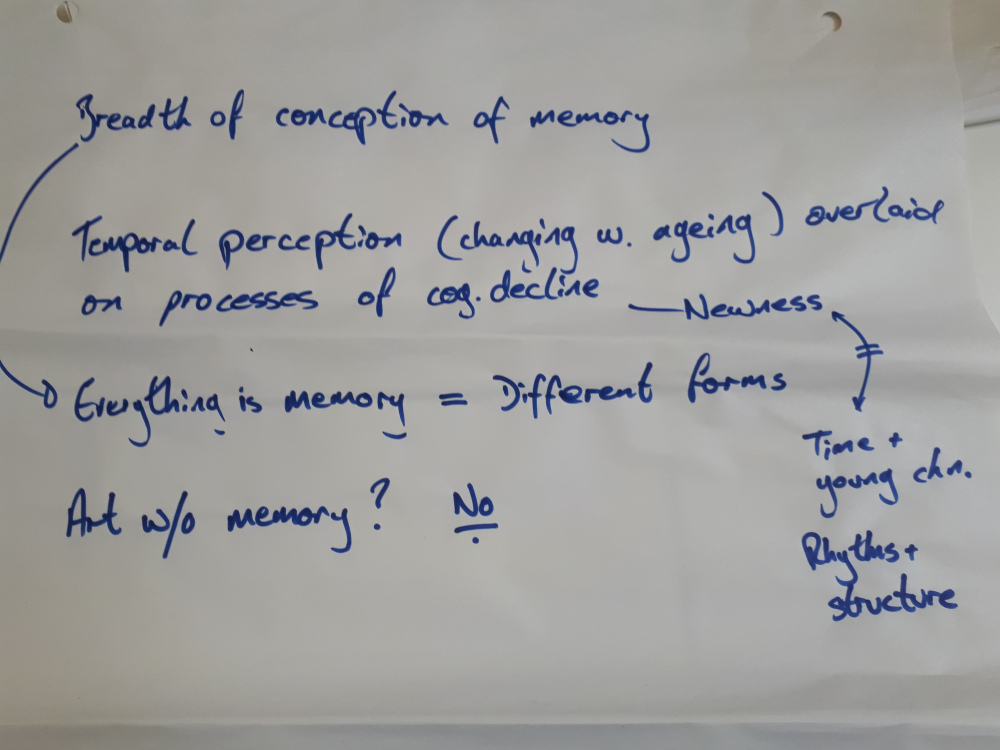 Breadth of conception of memory
Temporal perception (changing w. ageing) overlaid
on processes of cog. decline — Newness
Everything is memory = Different forms
Time +
young chn.
Art w/o memory? No
Rhythms +
structure